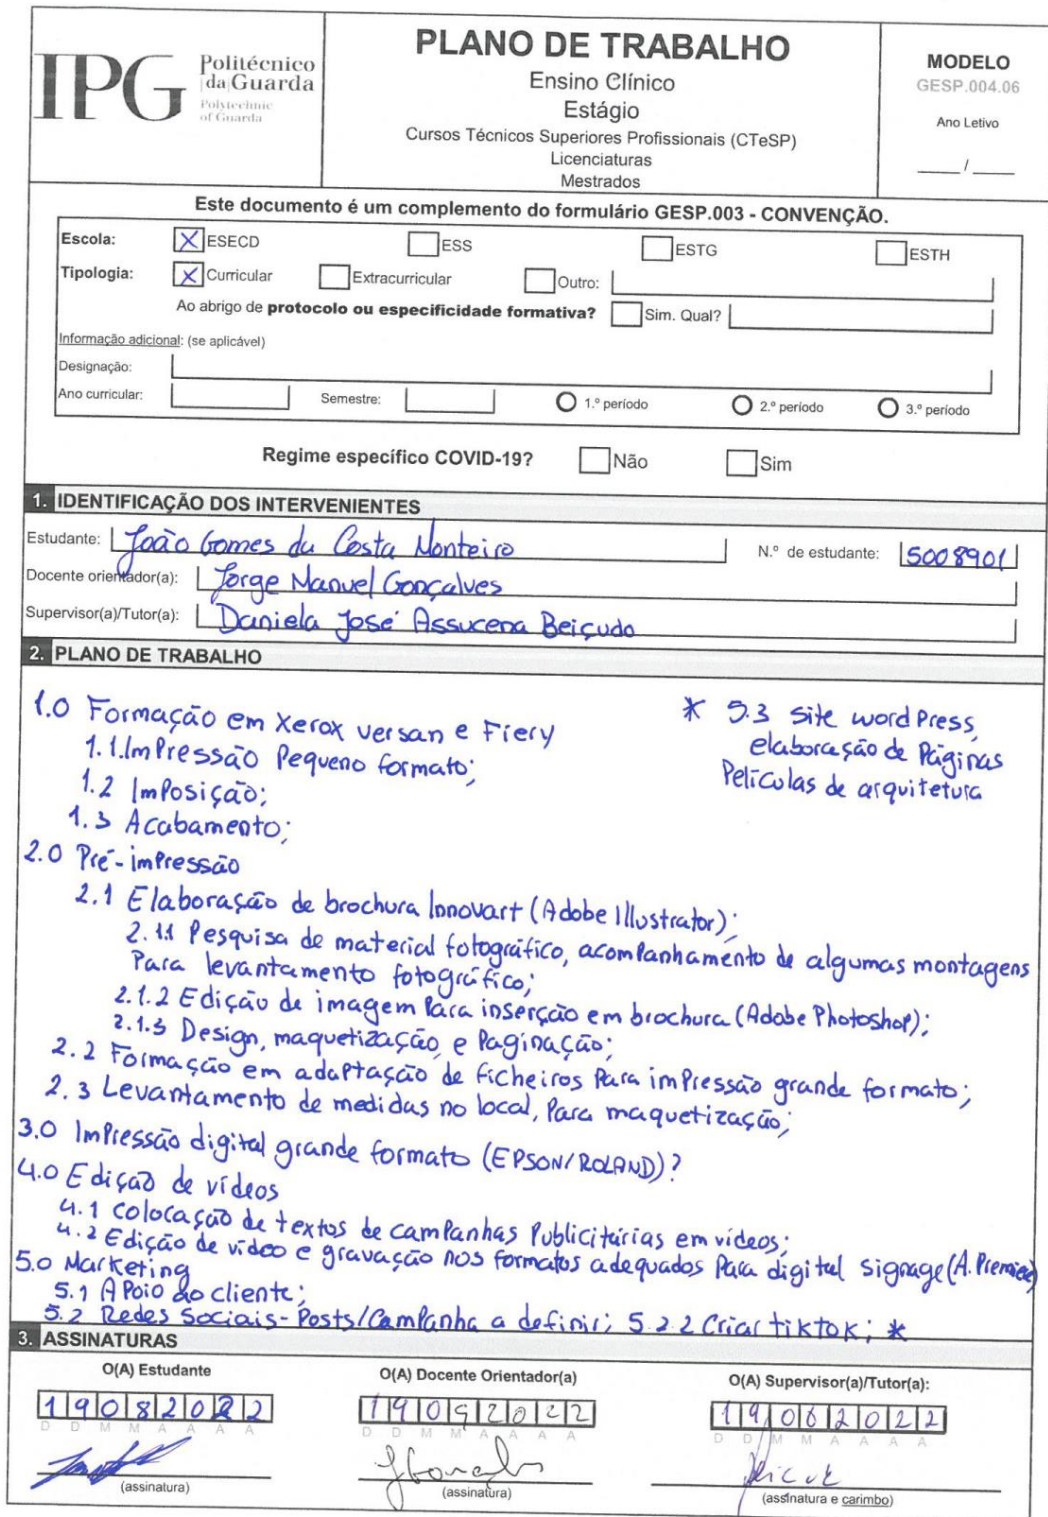 IPG Politécnico
da Guarda
Polytechnic
of Guarda
PLANO DE TRABALHO
Ensino Clínico
Estágio
Cursos Técnicos Superiores Profissionais (CTeSP)
Licenciaturas
Mestrados
MODELO
GESP.004.06
Ano Letivo
____/____
Este documento é um complemento do formulário GESP.003 - CONVENÇÃO.
Escola: X ESECD ESS ESTG ESTH
Tipologia: X Curricular Extracurricular Outro:
Ao abrigo de protocolo ou especificidade formativa? Sim. Qual?
Informação adicional: (se aplicável)
Designação:
Ano curricular: Semestre: 1.º período 2.º período 3.º período
Regime específico COVID-19? Não Sim
1. IDENTIFICAÇÃO DOS INTERVENIENTES
Estudante: João Gomes da Costa Monteiro N.º de estudante: 5008901
Docente orientador(a): Jorge Manuel Gonçalves
Supervisor(a)/Tutor(a): Daniela José Assucena Beiçudo
2. PLANO DE TRABALHO
1.0 Formação em Xerox versan e Fiery
1.1. Impressão Pequeno formato;
1.2 Imposição;
1.3 Acabamento;
* 5.3 Site wordPress,
elaboração de Páginas
Películas de arquitetura
2.0 Pré-impressão
2.1 Elaboração de brochura Innovart (Adobe Illustrator);
2.1.1 Pesquisa de material fotográfico, acompanhamento de algumas montagens
Para levantamento fotográfico;
2.1.2 Edição de imagem Para inserção em brochura (Adobe Photoshop);
2.1.3 Design, maquetização e Paginação;
2.2 Formação em adaptação de ficheiros Para impressão grande formato;
2.3 Levantamento de medidas no local, Para maquetização;
3.0 Impressão digital grande formato (EPSON/ROLAND)?
4.0 Edição de vídeos
4.1 Colocação de textos de campanhas Publicitárias em vídeos;
4.2 Edição de vídeo e gravação nos formatos adequados Para digital signage (A. Premiere)
5.0 Marketing
5.1 APoio ao cliente;
5.2 Redes Sociais - Posts/Campanha a definir; 5.2.2 Criar tiktok; *
3. ASSINATURAS
O(A) Estudante
O(A) Docente Orientador(a)
O(A) Supervisor(a)/Tutor(a):
19082022
19092022
19082022
D D M M A A A A
D D M M A A A A
D D M M A A A A
(assinatura)
(assinatura)
(assinatura e carimbo)